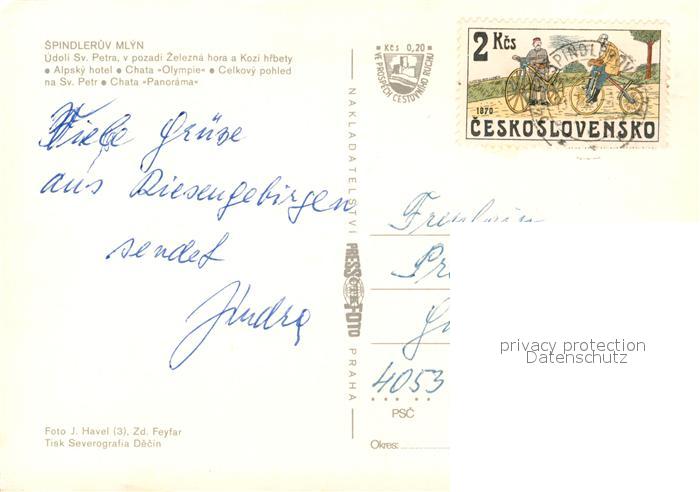 ŠPINDLERŮV MLÝN
Údolí Sv. Petra, v pozadí Železná hora a Kozí hřbety
● Alpský hotel ● Chata »Olympie« ● Celkový pohled
na Sv. Petr ● Chata »Panoráma«
Kčs 0,20
VE PROSPĚCH CESTOVNÍHO RUCHU
2 Kčs
1870
ČESKOSLOVENSKO
Viele Grüße
aus Riesengebirgen
sendet
Jindra
NAKLADATELSTVÍ
PRESSFOTO
PRAHA
Fräulein
4053
PSČ
Okres:
privacy protection
Datenschutz
Foto J. Havel (3), Zd. Feyfar
Tisk Severografia Děčín